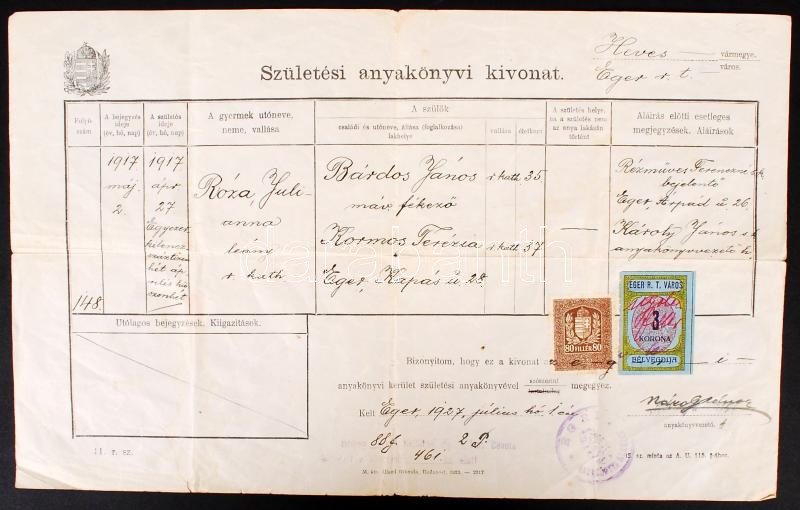 Heves vármegye.
Eger r. t. város.
Születési anyakönyvi kivonat.
Folyó szám
A bejegyzés ideje (év, hó, nap)
A születés ideje (év, hó, nap)
A gyermek utóneve, neme, vallása
A szülők
családi és utóneve, állása (foglalkozása) lakóhelye
vallása
életkora
A születés helye, ha a születés nem az anya lakásán történt
Aláírás előtti esetleges megjegyzések. Aláírások
148.
1917
máj.
2.
1917
ápr.
27
Egyezer-
kilencz
hét
Róza Juli-
anna
leány
r. kath.
Bárdos János r. kath. 35
máv fékező
Kormos Terézia r. kath. 37
Eger, Kapás u. 28.
Rézműves Ferenczné s.k.
bejelentő
Eger, Árpád u. 26.
Károly János s.k.
anyakönyvvezető h.
Utólagos bejegyzések. Kiigazítások.
80 FILLÉR 80
EGER R. T. VÁROS
3
KORONA
BÉLYEGDIJA
Bizonyítom, hogy ez a kivonat a
anyakönyvi kerület születési anyakönyvével szószerint megegyez.
Kelt Eger, 1927. július hó 1 én
88 f. 2 P.
461
anyakönyvvezető.
11. r. sz.